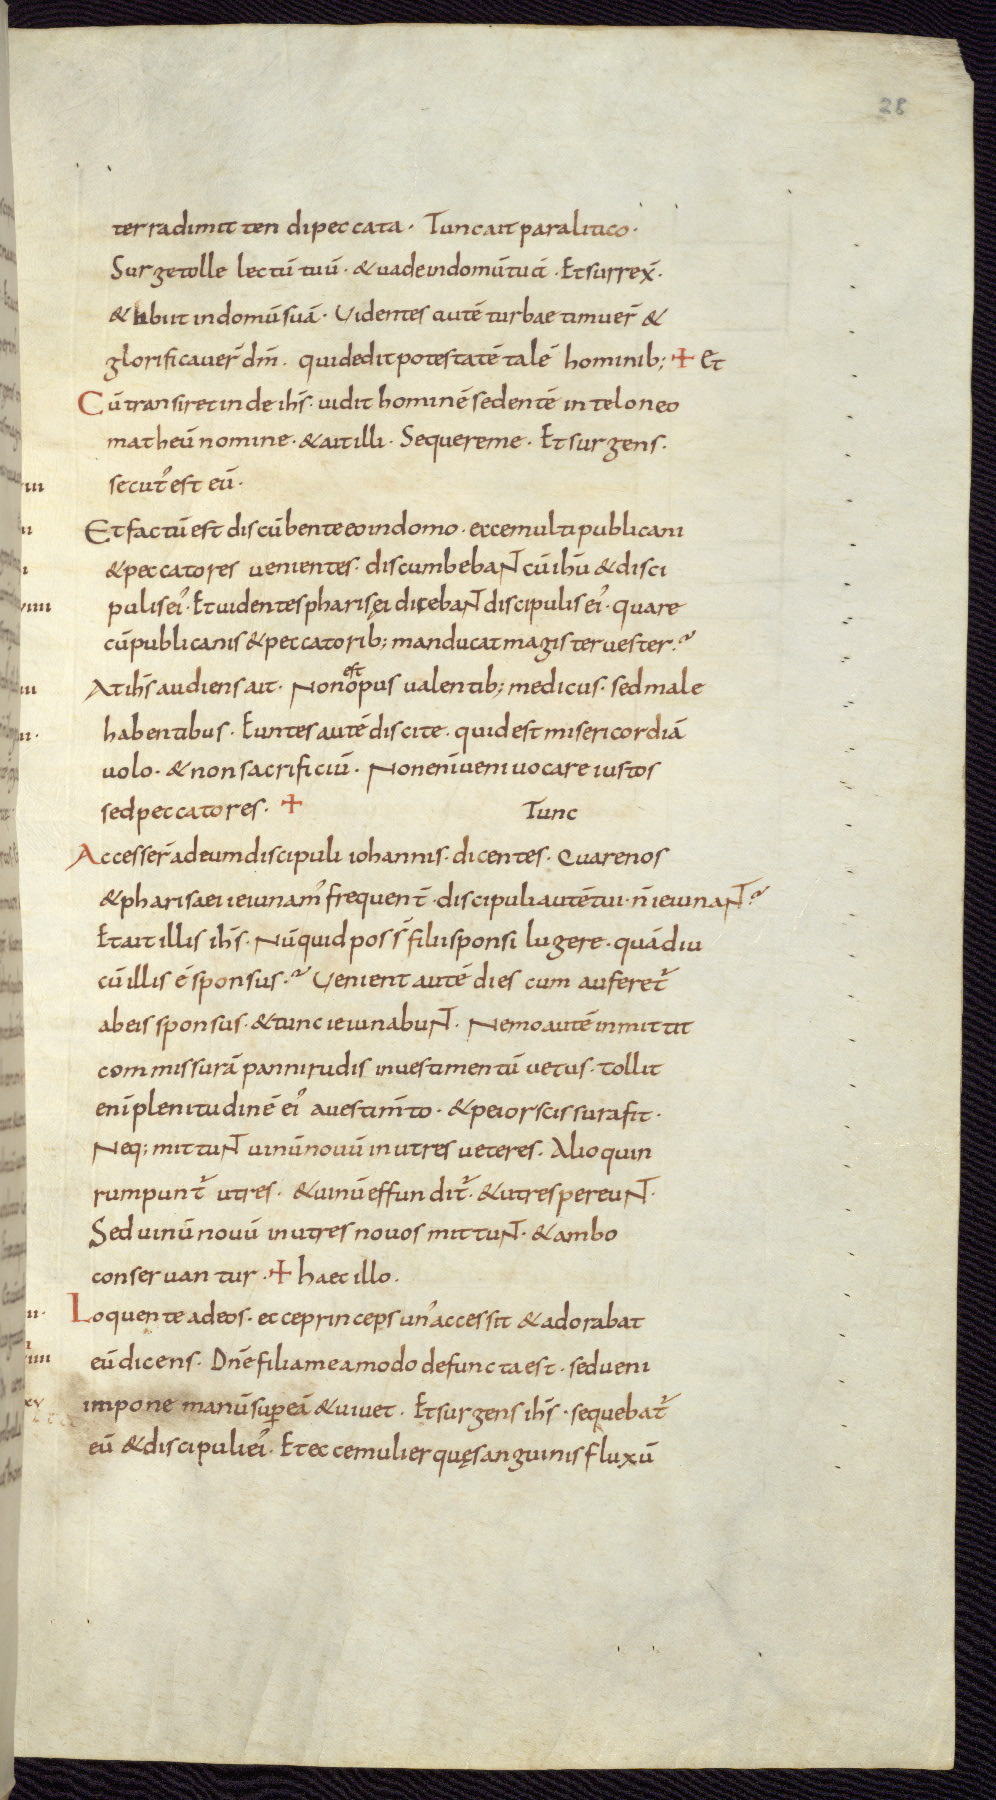 28
terra dimittendi peccata · Tunc ait paralitico ·
Surge tolle lectū tuū · & uade in domū tuā · Et surrex̄ ·
& abiit in domū suā · Uidentes autē turbae timuer̄ &
glorificauer̄ dm̄ · qui dedit potestatē talē hominib; + Et
Cū transiret inde ihs̄ · uidit hominē sedentē in teloneo
matheū nomine · & ait illi · Sequere me · Et surgens ·
secut᾽ est eū ·
Et factū est discūbente eo in domo · ecce multi publicani
& peccatores uenientes · discumbebaNT cū ihū & disci
puli ei᾽ · Et uidentes pharisęi dicebaNT discipulis ei᾽ · quare
cū publicanis & peccatorib; manducat magister uester ?
At ihs̄ audiens ait · Non est opus ualentib; medicus · sed male
habentibus · Euntes autē discite · quid est misericordiā
uolo · & non sacrificiū · Non enī ueni uocare iustos
sed peccatores · + Tunc
Accesser̄ ad eum discipuli iohannis · dicentes · Quare nos
& pharisaei ieiunam᾽ frequent̄ · discipuli autē tui · n̄ ieiunaNT ?
Et ait illis ihs̄ · Nūquid poss̄ filii sponsi lugere · quādiu
cū illis ē sponsus ? Uenient autē dies cum auferet᾽
ab eis sponsus · & tunc ieiunabuNT · Nemo autē inmittit
commissurā panni rudis in uestimentū uetus · tollit
enī plenitudinē ei᾽ a uestim̄to · & peior scissura fit ·
Neq; mittuNT uinū nouū in utres ueteres · Alioquin
rumpunt᾽ utres · & uinū effundit᾽ · & utres pereuNT ·
Sed uinū nouū in utres nouos mittuNT · & ambo
conseruantur · + haec illo ·
Loquente ad eos · ecce princeps un᾽ accessit & adorabat
eū dicens · Dn̄e filia mea modo defuncta est · sed ueni
impone manū sup̄ eā & uiuet · Et surgens ihs̄ · sequebat᾽
eū & discipuli ei᾽ · Et ecce mulier quę sanguinis fluxū